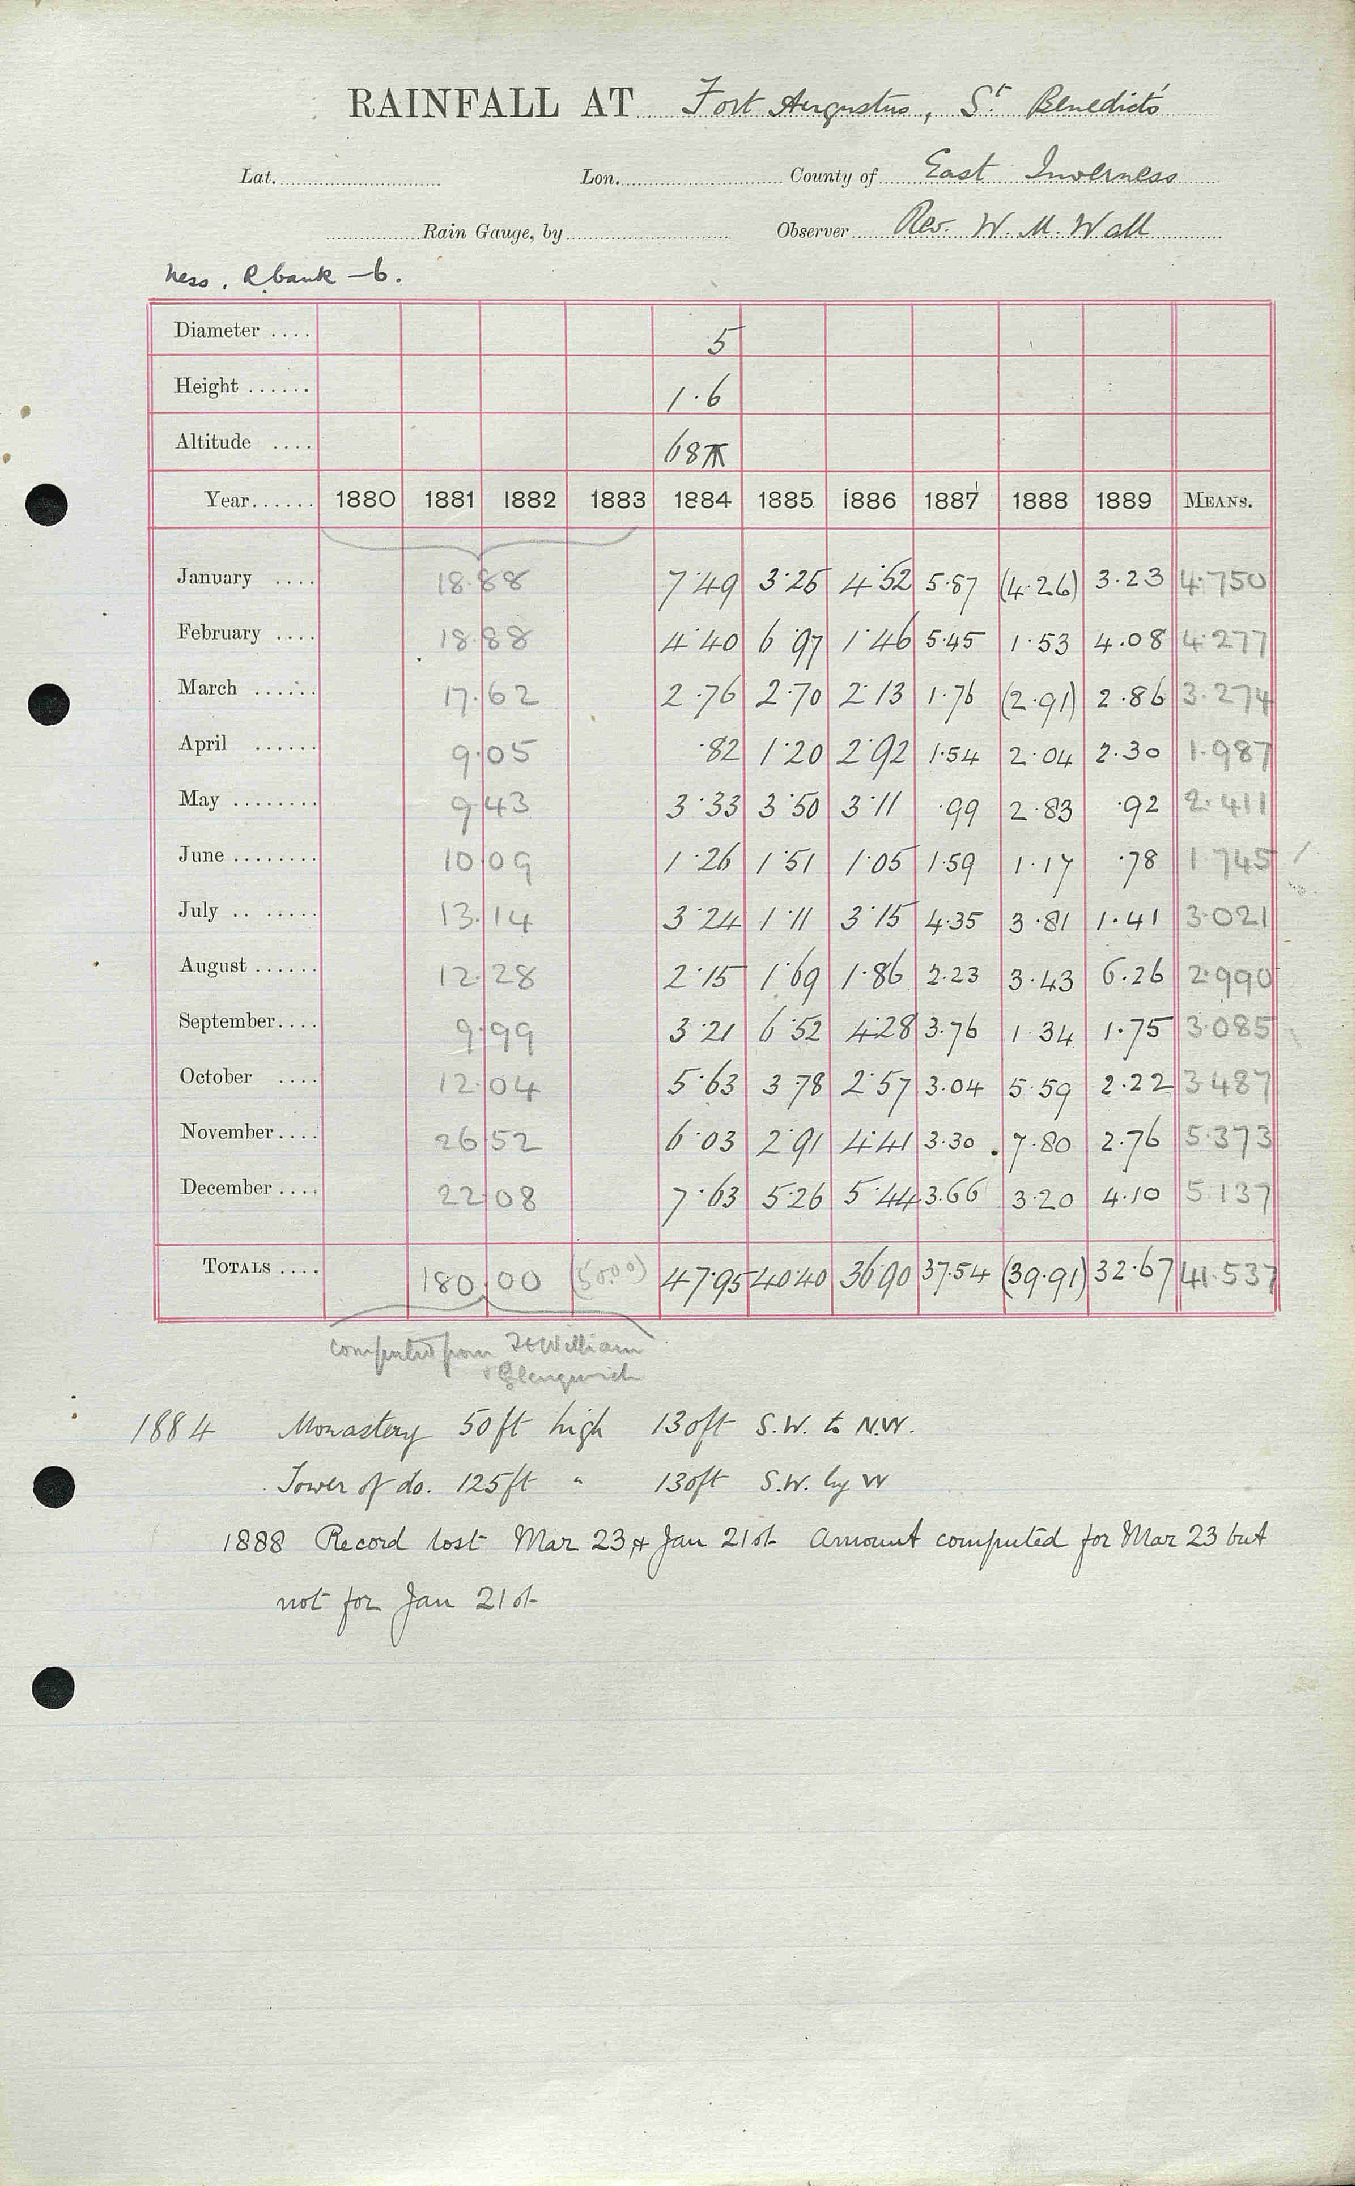 RAINFALL AT Fort Augustus, St Benedicts
Lat. Lon. County of East Inverness
Rain Gauge, by Observer Rev. W. M. Wall
Ness. R. bank - b.
Diameter .... 5
Height ...... 1.6
Altitude .... 68
Year...... 1880 1881 1882 1883 1884 1885 1886 1887 1888 1889 MEANS.
January .... 18.88 7.49 3.25 4.52 5.87 (4.26) 3.23 4.750
February .... 18.88 4.40 6.97 1.46 5.45 1.53 4.08 4.277
March ...... 17.62 2.76 2.70 2.13 1.76 (2.91) 2.86 3.274
April ...... 9.05 .82 1.20 2.92 1.54 2.04 2.30 1.987
May ........ 9.43 3.33 3.50 3.11 .99 2.83 .92 2.411
June ........ 10.09 1.26 1.51 1.05 1.59 1.17 .78 1.745
July .. ..... 13.14 3.24 1.11 3.15 4.35 3.81 1.41 3.021
August ...... 12.28 2.15 1.69 1.86 2.23 3.43 6.26 2.990
September.... 9.99 3.21 6.52 4.28 3.76 1.34 1.75 3.085
October .... 12.04 5.63 3.78 2.57 3.04 5.59 2.22 3.487
November.... 26.52 6.03 2.91 4.41 3.30 7.80 2.76 5.373
December.... 22.08 7.63 5.26 5.44 3.66 3.20 4.10 5.137
TOTALS .... 180.00 (50.00) 47.95 40.40 36.90 37.54 (39.91) 32.67 41.537
computed from Ft William
& Glenquoich
1884 Monastery 50ft high 130ft S.W. to N.W.
Tower of do. 125ft " 130ft S.W. by W
1888 Record lost Mar 23 & Jan 21st Amount computed for Mar 23 but
not for Jan 21st